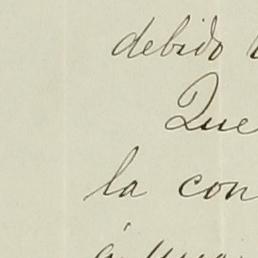 debido
Que
la con
á